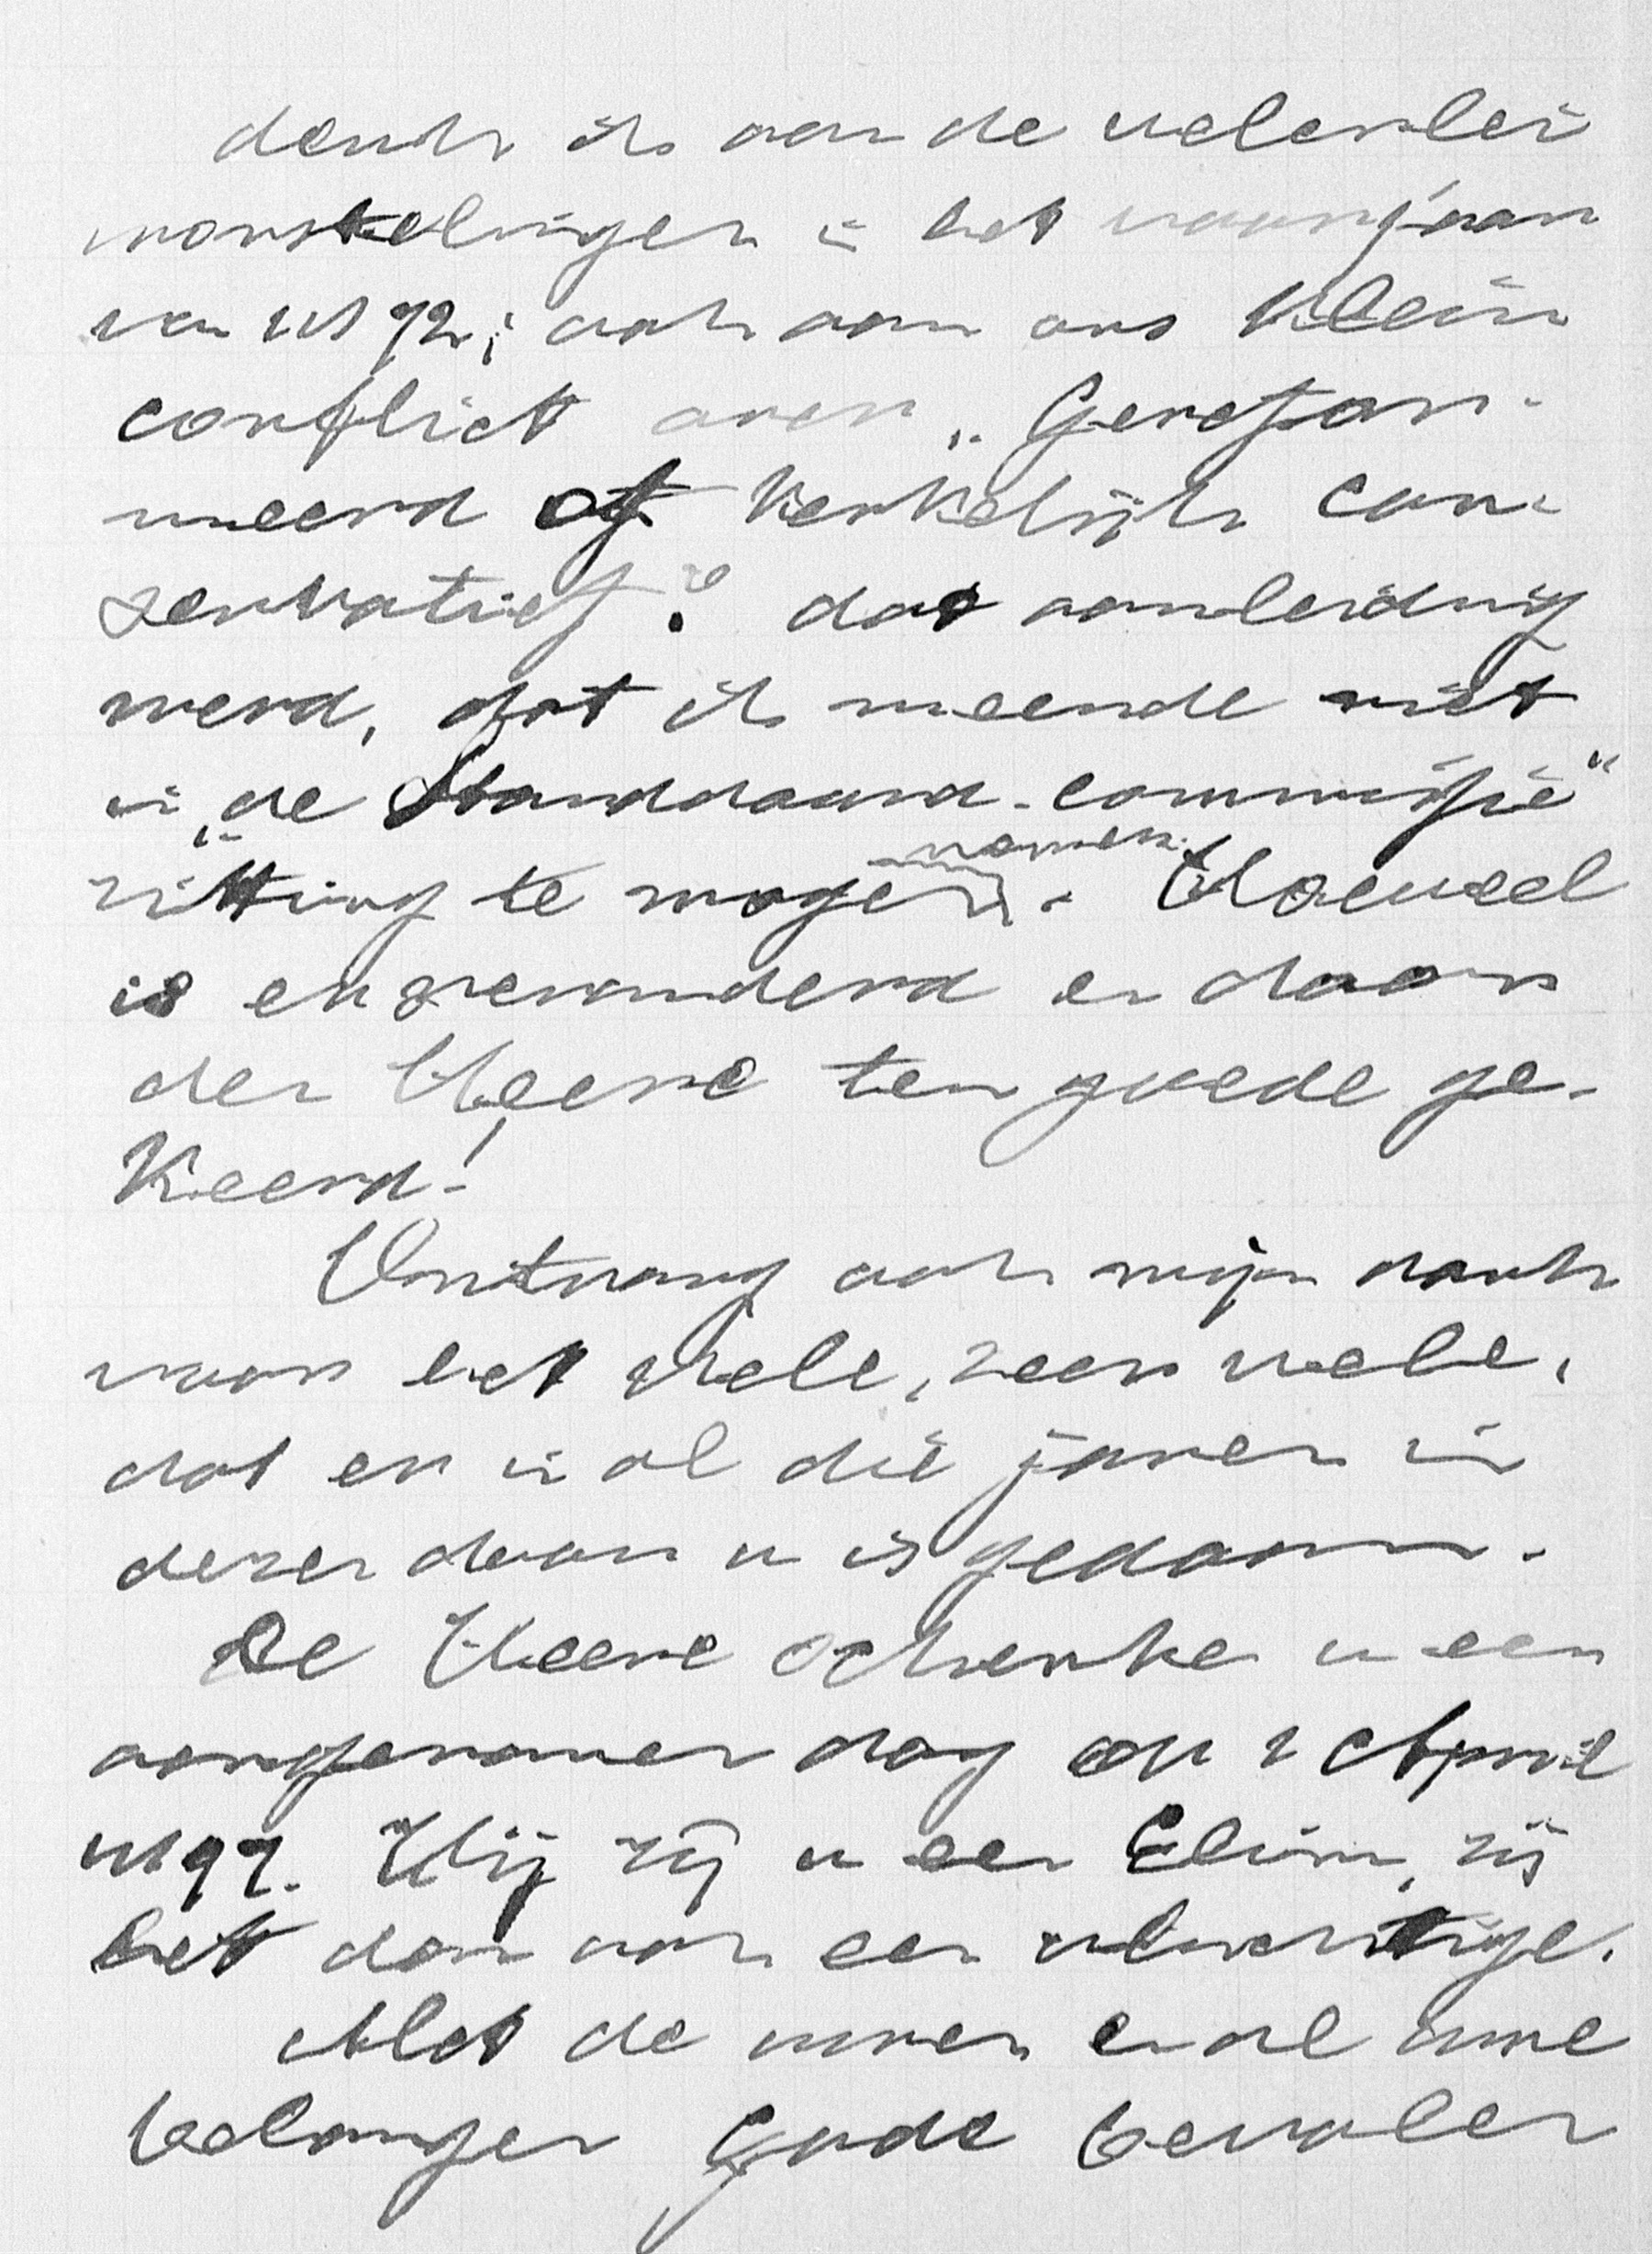 denk ik aan de velerlei
worstelingen in het voorjaar
van 1872; ook aan ons klein
conflict over „Gerefor-
meerd of Kerkelijk con-
servatief? dat aanleiding
werd, dat ik meende niet
in „de Standaard-commissie"
zitting te mogen nemen. Hoeveel
is er veranderd en door
den Heere ten goede ge-
Keerd!
Ontvang ook mijn dank
voor het vele, zeer vele,
dat er in al die jaren in
dezen door u is gedaan.
De Heere schenke u een
aangenamen dag op 1 April
1897. Hij zij u een Elim, zij
het dan ook een
Met de uwen en al uwe
belangen Gode bevolen